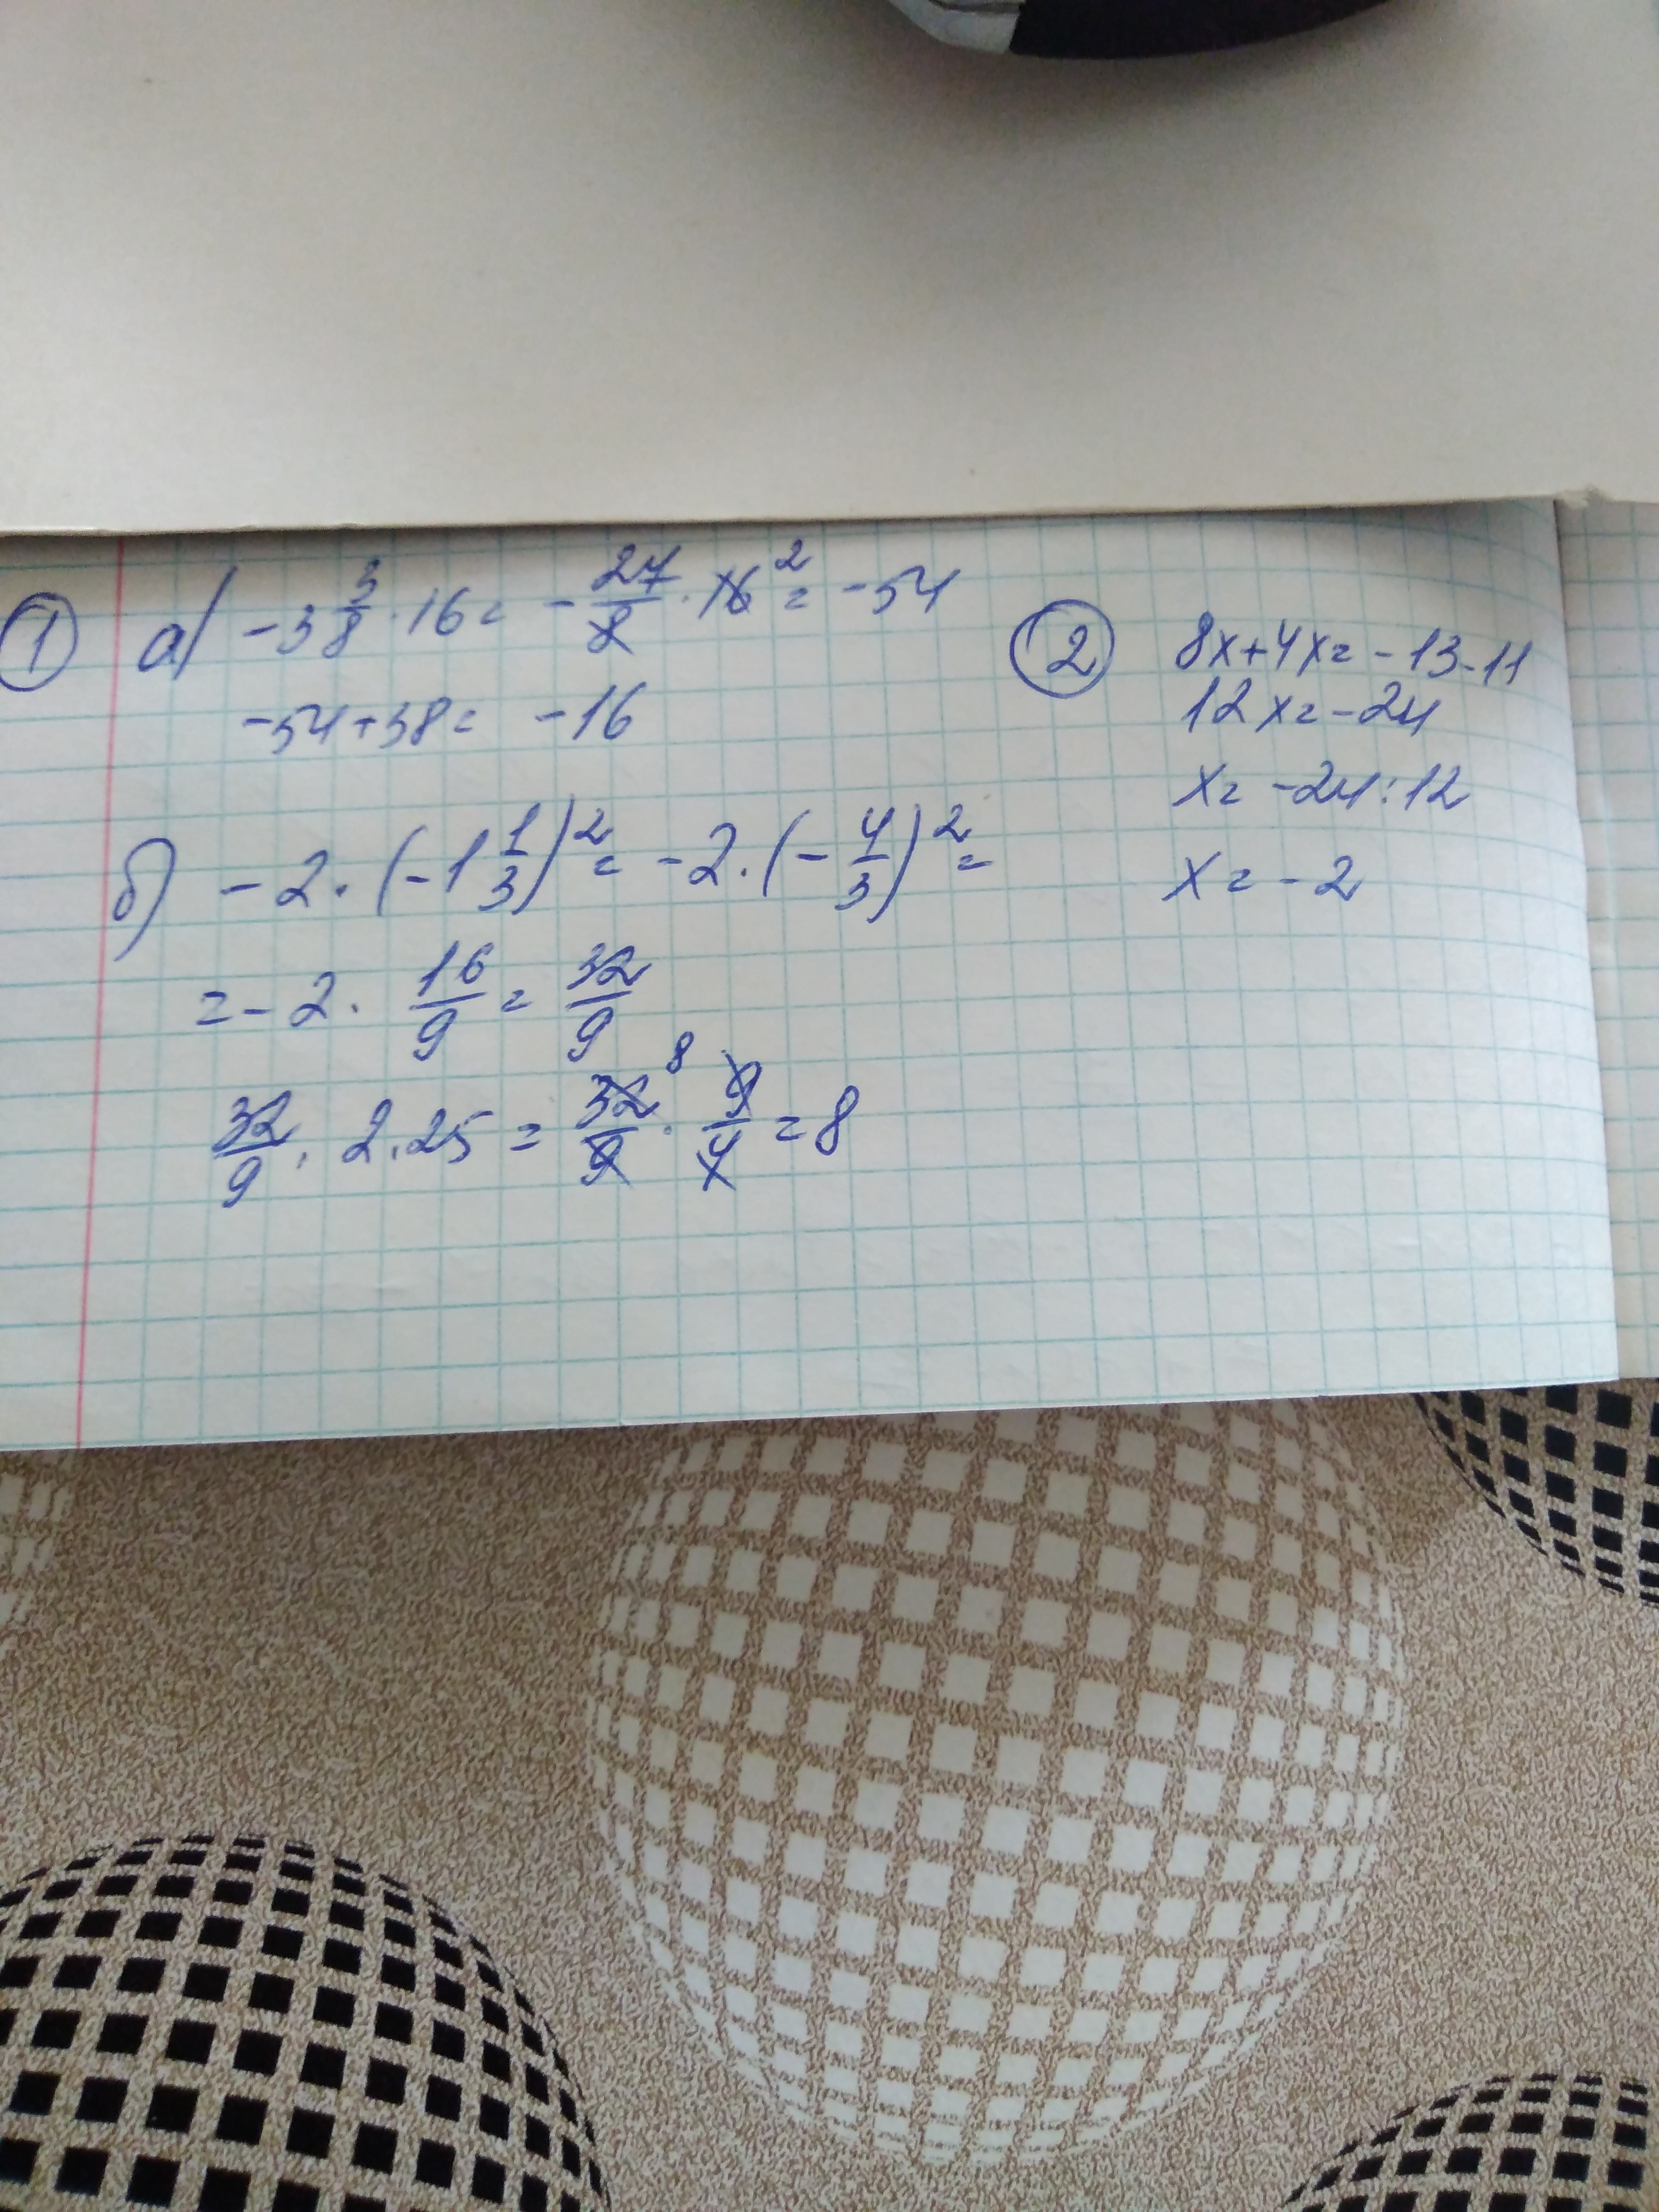 1 а) -3 3/8 · 16 = -27/8 · 16 2 = -54
-54+38= -16
б) -2 · (-1 1/3)² = -2 · (-4/3)² =
= -2 · 16/9 = 32/9
32/9 · 2.25 = 32/9 8 · 9/4 = 8
2 8x+4x=-13-11
12x=-24
x= -24:12
x=-2